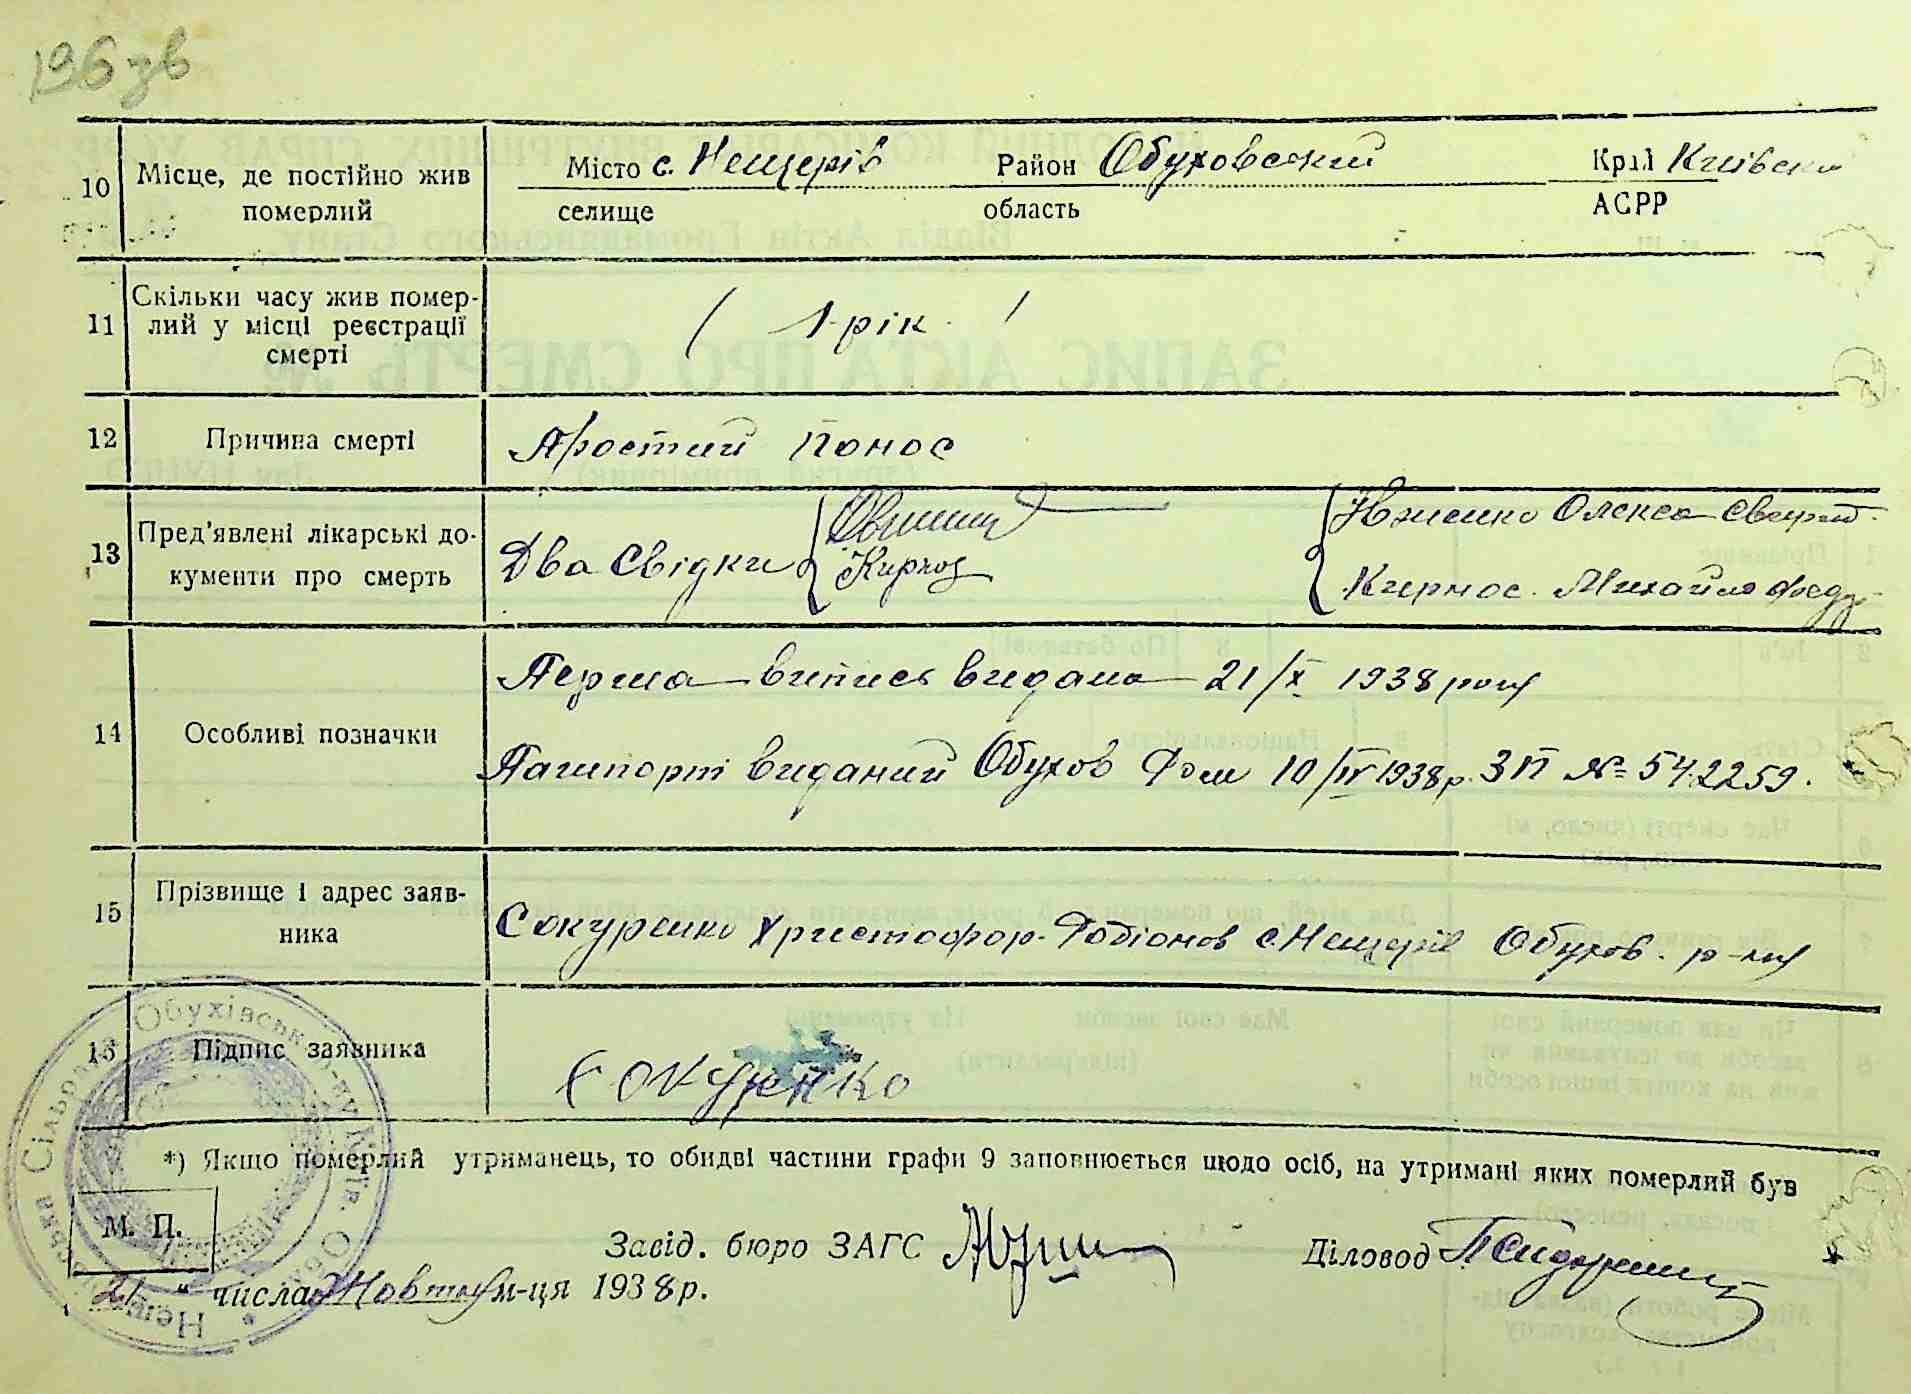 196 зв
10 Місце, де постійно жив померлий
Місто с. Нещерів Район Обуховский Край Київськ
селище область АСРР
11 Скільки часу жив помер-
лий у місці реєстрації
смерті
1 рік
12 Причина смерті
Простий понос
13 Пред'явлені лікарські до-
кументи про смерть
Два Свідки
Кирноз
Олекса
Кирнос Михайло Федр
14 Особливі позначки
Перша випись видана 21/X 1938 року
Пашпорт виданий Обухов 10/IV 1938 р. ЗП № 542259.
15 Прізвище і адрес заяв-
ника
Сокуренко Христофор Родіонов с. Нещерів Обухов. р-ну
16 Підпис заявника
Сокуренко
*) Якщо померлий утриманець, то обидві частини графи 9 заповнюється щодо осіб, на утримані яких померлий був
М. П.
Завід. бюро ЗАГС
Діловод
21 " числа Жовтня м-ця 1938 р.
Сільрада Обухівськ. р-ну Київ. Обл.